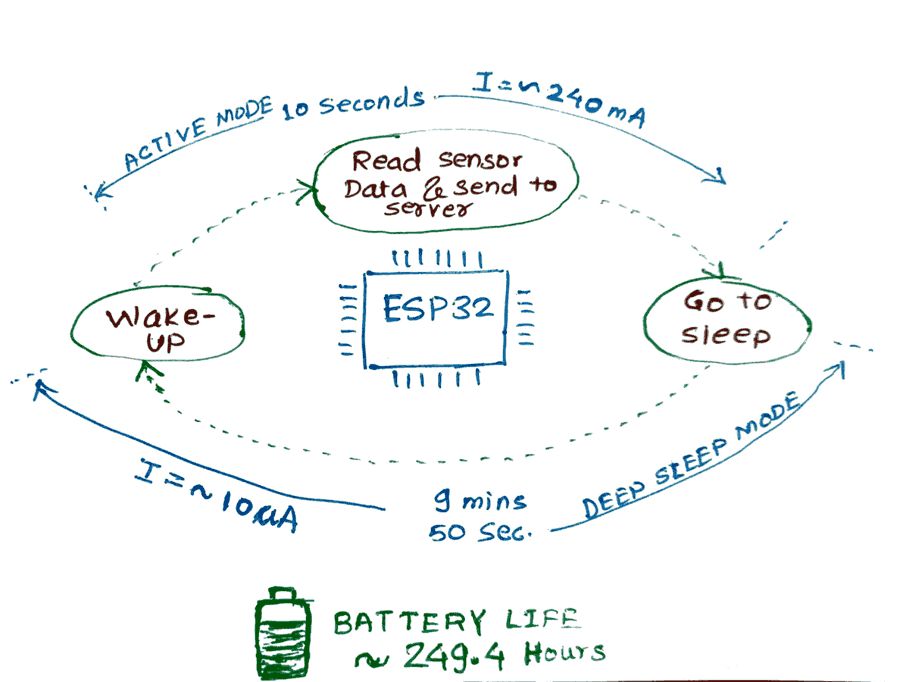 ACTIVE MODE 10 seconds I = ~ 240mA
Read sensor
Data & send to
server
Wake-
UP
ESP32
Go to
sleep
I = ~ 10µA
9 mins
50 Sec.
DEEP SLEEP MODE
BATTERY LIFE
~ 249.4 Hours